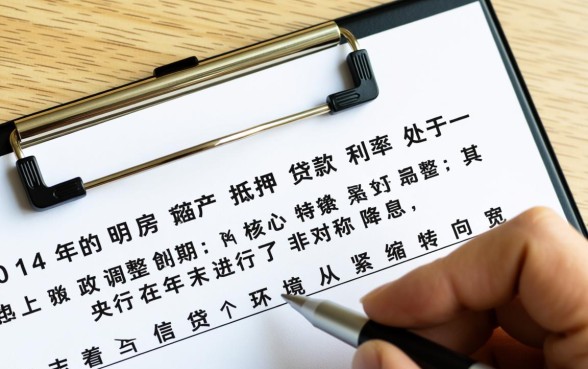 014 年的 明房 产 抵押 贷款 利率 处于一
上 政调整 创期： 核心 特 整；其
央行在年末进行了 非对称 降息，
着 信贷 个 环境 从 紧缩 转 向 宽